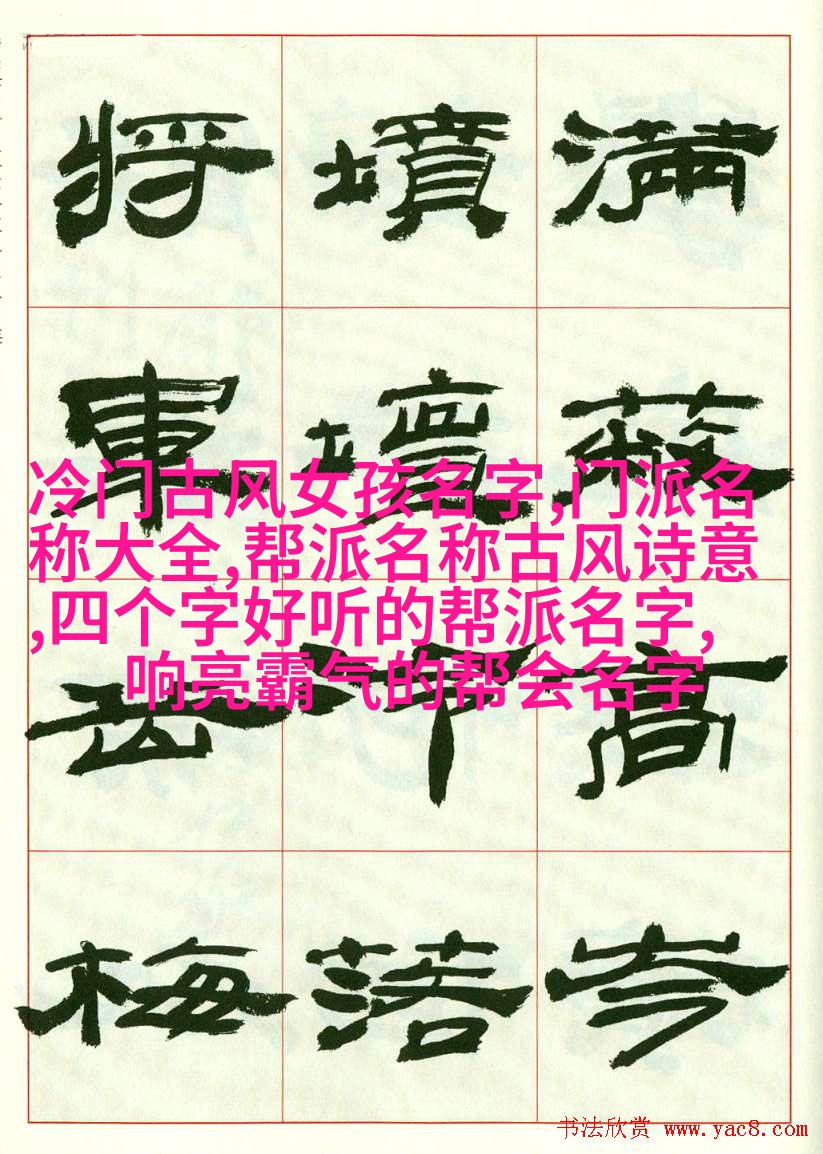 滿高岑
墳壇下落
將軍梅
冷门古风女孩名字,门派名
称大全,帮派名称古风诗意
,四个字好听的帮派名字,
响亮霸气的帮会名字
书法欣赏 www.yac8.com